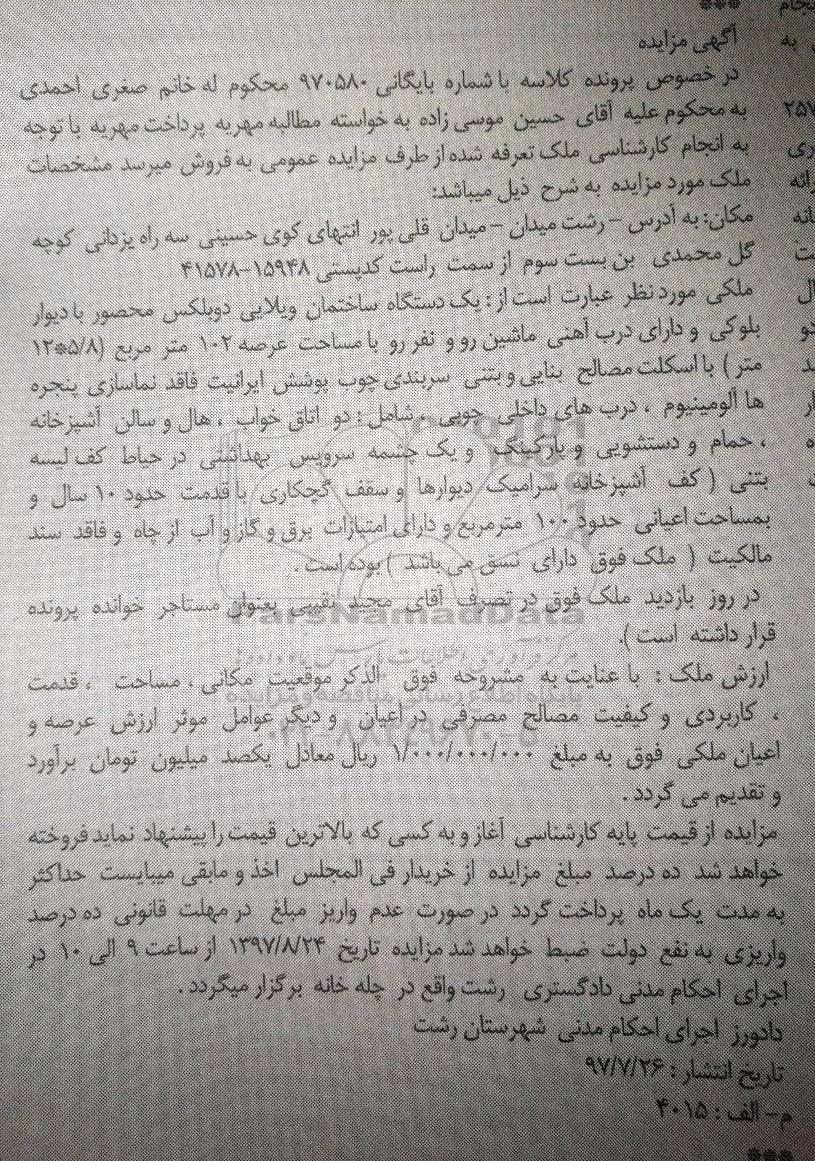 ***
آگهی مزایده
در خصوص پرونده کلاسه با شماره بایگانی ۹۷۰۵۸۰ محکوم له خانم صغری احمدی
به محکوم علیه آقای حسین موسی زاده به خواسته مطالبه مهریه پرداخت مهریه با توجه
به انجام کارشناسی ملک تعرفه شده از طرف مزایده عمومی به فروش میرسد مشخصات
ملک مورد مزایده به شرح ذیل میباشد:
مکان: به آدرس – رشت میدان – میدان قلی پور انتهای کوی حسینی سه راه یزدانی کوچه
گل محمدی بن بست سوم از سمت راست کدپستی ۱۵۹۴۸-۴۱۵۷۸
ملکی مورد نظر عبارت است از : یک دستگاه ساختمان ویلایی دوبلکس محصور با دیوار
بلوکی و دارای درب آهنی ماشین رو و نفر رو با مساحت عرصه ۱۰۲ متر مربع (۵/۸*۱۲
متر ) با اسکلت مصالح بنایی و بتنی سربندی چوب پوشش ایرانیت فاقد نماسازی پنجره
ها آلومینیوم ، درب های داخلی چوبی ، شامل : دو اتاق خواب ، هال و سالن آشپزخانه
، حمام و دستشویی و پارکینگ و یک چشمه سرویس بهداشتی در حیاط کف لیسه
بتنی ( کف آشپزخانه سرامیک دیوارها و سقف گچکاری با قدمت حدود ۱۰ سال و
بمساحت اعیانی حدود ۱۰۰ مترمربع و دارای امتیازات برق و گاز و آب از چاه و فاقد سند
مالکیت ( ملک فوق دارای نسق می باشد ) بوده است .
در روز بازدید ملک فوق در تصرف آقای مجید نقیبی بعنوان مستاجر خوانده پرونده
قرار داشته است ).
ارزش ملک : با عنایت به مشروحه فوق الذکر موقعیت مکانی ، مساحت ، قدمت
، کاربردی و کیفیت مصالح مصرفی در اعیان و دیگر عوامل موثر ارزش عرصه و
اعیان ملکی فوق به مبلغ ۱/۰۰۰/۰۰۰/۰۰۰ ریال معادل یکصد میلیون تومان برآورد
و تقدیم می گردد .
مزایده از قیمت پایه کارشناسی آغاز و به کسی که بالاترین قیمت را پیشنهاد نماید فروخته
خواهد شد ده درصد مبلغ مزایده از خریدار فی المجلس اخذ و مابقی میبایست حداکثر
به مدت یک ماه پرداخت گردد در صورت عدم واریز مبلغ در مهلت قانونی ده درصد
واریزی به نفع دولت ضبط خواهد شد مزایده تاریخ ۱۳۹۷/۸/۲۴ از ساعت ۹ الی ۱۰ در
اجرای احکام مدنی دادگستری رشت واقع در چله خانه برگزار میگردد .
دادورز اجرای احکام مدنی شهرستان رشت
تاریخ انتشار : ۹۷/۷/۲۶
م – الف : ۴۰۱۵
***
ParsNamadData